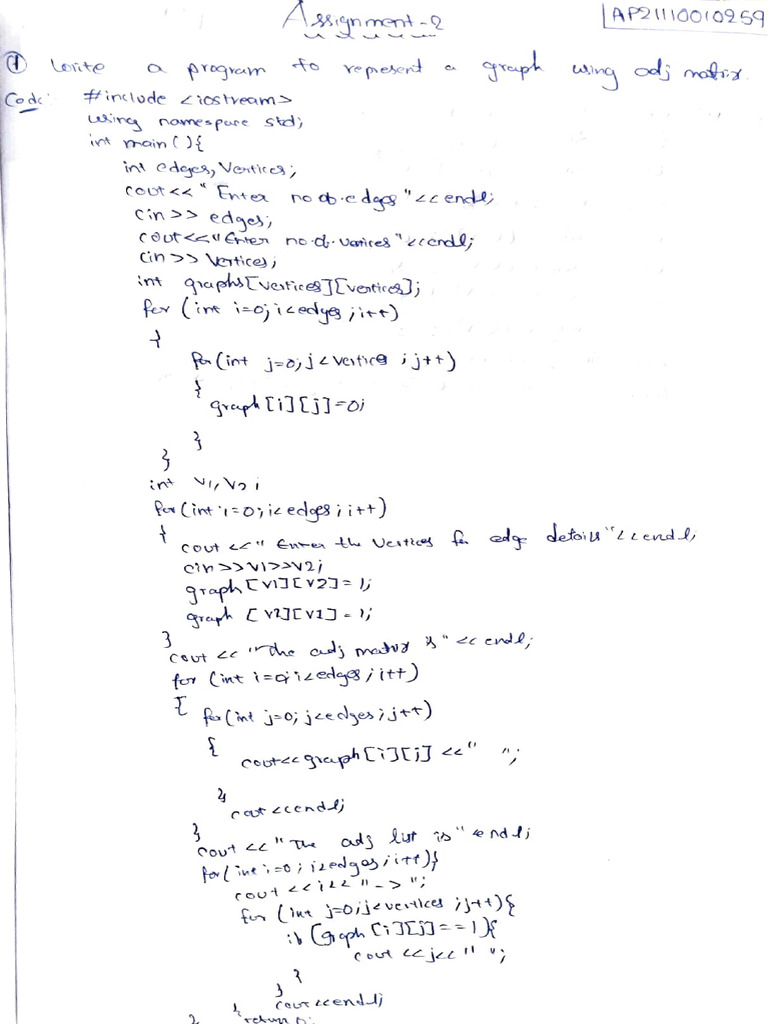 Assignment-2
AP21110010259
① Write a program to represent a graph using adj matrix.
Code: #include <iostream>
using namespace std;
int main(){
int edges, Vertices;
cout<<"Enter no of edges"<<endl;
cin>> edges;
cout<<"Enter no.of. varices"<<endl;
cin>> Vertices;
int graphs[vertices][vertices];
for (int i=0; i<edges; i++)
{
for(int j=0; j<vertice; j++)
{
graph[i][j]=0;
}
}
int V1, V2;
for(int i=0; i<edges; i++)
{
cout <<" Enter the Vertices for edge details"<<endl;
cin>>V1>>V2;
graph[V1][V2]=1;
graph [V2][V1]=1;
}
cout << "The adj matrix is" << endl;
for (int i=0; i<edges; i++)
{
for(int j=0; j<edges; j++)
{
cout<<graph[i][j] <<" ";
}
cout <<endl;
}
cout << "The adj list is" endl;
for(int i=0; i<edges; i++){
cout <<i<< "->";
for (int j=0; j<vertices; j++){
if (graph[i][j]==1){
cout <<j<<" ";
}
}
cout<<endl;
} } return 0;